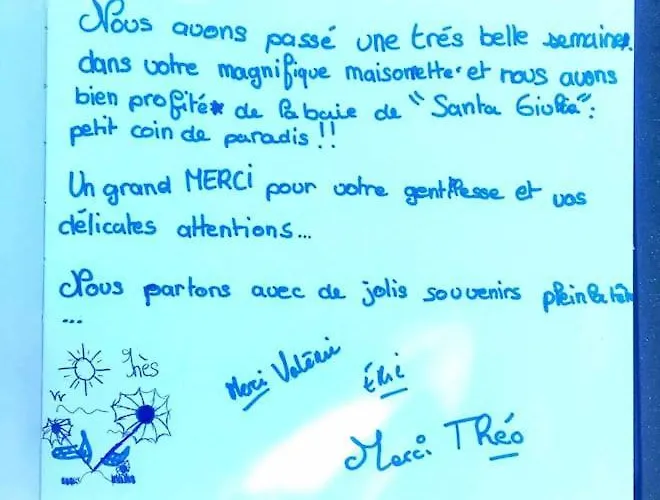 Nous avons passé une trés belle semaine
dans votre magnifique maisonette et nous avons
bien profité de la baie de "Santa Giulia":
petit coin de paradis !!
Un grand MERCI pour votre gentillesse et vos
délicates attentions...
Nous partons avec de jolis souvenirs plein la tête
...
Inès
Merci Valérie
Éric
Merci Théo